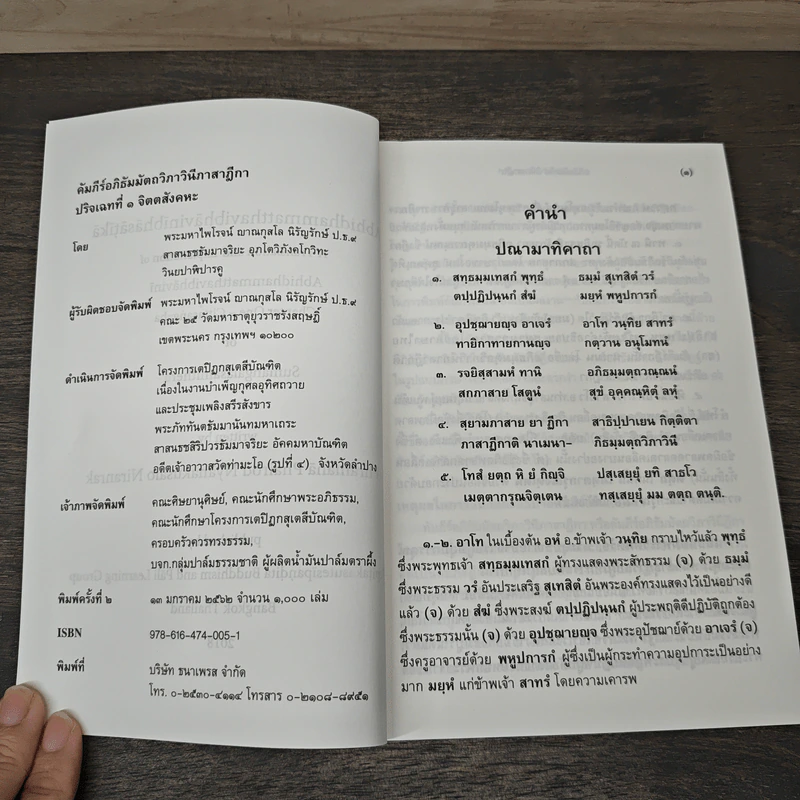 คัมภีร์อภิธัมมัตถวิภาวินีภาสาฎีกา
ปริจเฉทที่ ๑ จิตตสังคหะ
โดย พระมหาไพโรจน์ ญาณกุสโล นิรัญรักษ์ ป.ธ.๙
สาสนธชธัมมาจริยะ อุภโตวิภังคโกวิทะ
วินยปาฬิปารคู
ผู้รับผิดชอบจัดพิมพ์ พระมหาไพโรจน์ ญาณกุสโล นิรัญรักษ์ ป.ธ.๙
คณะ ๒๕ วัดมหาธาตุยุวราชรังสฤษฎิ์
เขตพระนคร กรุงเทพฯ ๑๐๒๐๐
ดำเนินการจัดพิมพ์ โครงการเตปิฎกสุเตสีบัณฑิต
เนื่องในงานบำเพ็ญกุศลอุทิศถวาย
และประชุมเพลิงสรีรสังขาร
พระภัททันตธัมมานันทมหาเถระ
สาสนธชสิริปวรธัมมาจริยะ อัคคมหาบัณฑิต
อดีตเจ้าอาวาสวัดท่ามะโอ (รูปที่ ๔) จังหวัดลำปาง
เจ้าภาพจัดพิมพ์ คณะศิษยานุศิษย์, คณะนักศึกษาพระอภิธรรม,
คณะนักศึกษาโครงการเตปิฎกสุเตสีบัณฑิต,
ครอบครัวควรทรงธรรม,
บจก.กลุ่มปาล์มธรรมชาติ ผู้ผลิตน้ำมันปาล์มตราผึ้ง
พิมพ์ครั้งที่ ๒ ๑๓ มกราคม ๒๕๖๒ จำนวน ๑,๐๐๐ เล่ม
ISBN 978-616-474-005-1
พิมพ์ที่ บริษัท ธนาเพรส จำกัด
โทร. ๐-๒๕๓๐-๔๑๑๔ โทรสาร ๐-๒๑๐๘-๘๙๕๑
(๑)
คำนำ
ปณามาทิคาถา
๑. สทฺธมฺมเทสกํ พุทฺธํ ธมฺมํ สุเทสิตํ วรํ
ตปฺปฏิปนฺนกํ สํฆํ มยฺหํ พหูปการกํ
๒. อุปชฺฌายญฺจ อาเจรํ อาโท วนฺทิย สาทรํ
ทายิกาทายกานญฺจ กตฺวาน อนุโมทนํ
๓. รจยิสฺสามหํ ทานิ อภิธมฺมตฺถวณฺณนํ
สกภาสาย โสตูนํ สุขํ อุคฺคณฺหิตุํ ลหุํ
๔. สฺยามภาสาย ยา ฏีกา สาธิปฺปาเยน กิตฺติตา
ภาสาฏีกาติ นาเมนา- ภิธมฺมตฺถวิภาวินี
๕. โทสํ ยตฺถ หิ ยํ กิญฺจิ ปสฺเสยฺยุํ ยทิ สาธโว
เมตฺตากรุณจิตฺเตน ทสฺเสยฺยุํ มม ตตฺถ ตนฺติ.
๑.-๒. อาโท ในเบื้องต้น อหํ อ.ข้าพเจ้า วนฺทิย กราบไหว้แล้ว พุทฺธํ
ซึ่งพระพุทธเจ้า สทฺธมฺมเทสกํ ผู้ทรงแสดงพระสัทธรรม (จ) ด้วย ธมฺมํ
ซึ่งพระธรรม วรํ อันประเสริฐ สุเทสิตํ อันพระองค์ทรงแสดงไว้เป็นอย่างดี
แล้ว (จ) ด้วย สํฆํ ซึ่งพระสงฆ์ ตปฺปฏิปนฺนกํ ผู้ประพฤติดีปฏิบัติถูกต้อง
ซึ่งพระธรรมนั้น (จ) ด้วย อุปชฺฌายญฺจ ซึ่งพระอุปัชฌาย์ด้วย อาเจรํ (จ)
ซึ่งครูอาจารย์ด้วย พหูปการกํ ผู้ซึ่งเป็นผู้กระทำความอุปการะเป็นอย่าง
มาก มยฺหํ แก่ข้าพเจ้า สาทรํ โดยความเคารพ